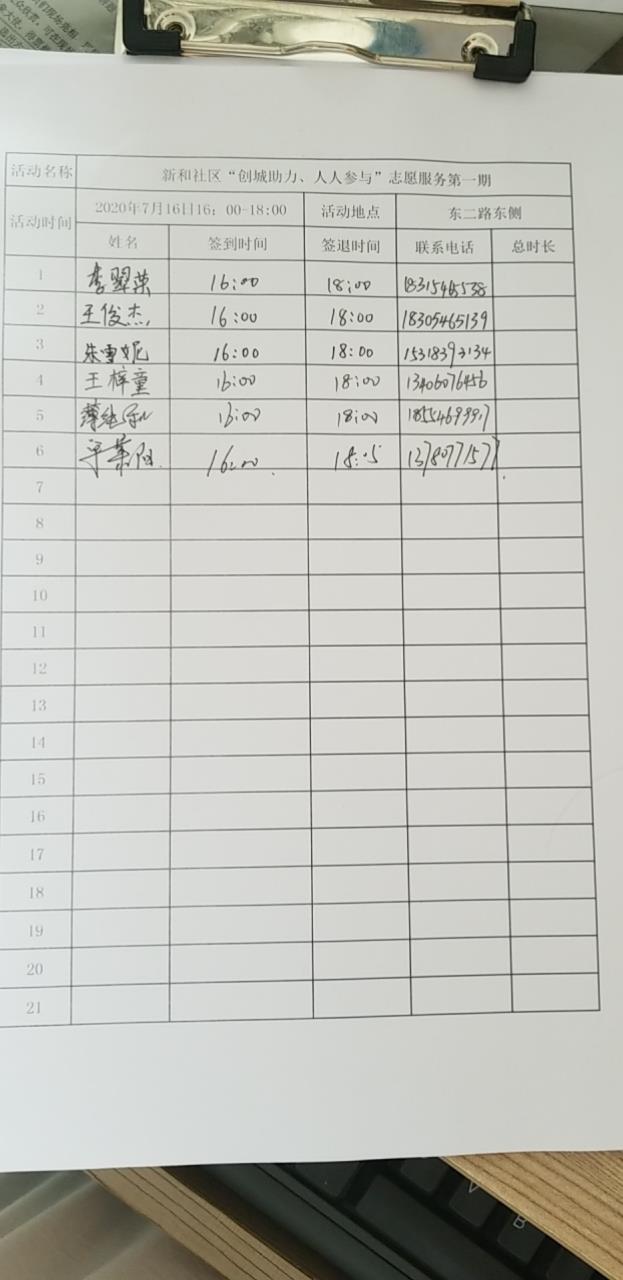 活动名称 新和社区“创城助力、人人参与”志愿服务第一期
活动时间 2020年7月16日16：00-18:00 活动地点 东二路东侧
姓名 签到时间 签退时间 联系电话 总时长
1 李翠荣 16:00 18:00 18315465538
2 王俊杰 16:00 18:00 18305465139
3 朱雪妮 16:00 18:00 15318393134
4 王梓童 16:00 18:00 13406076456
5 16:00 18:00
6 16:00 18:05
7
8
9
10
11
12
13
14
15
16
17
18
19
20
21
V
B